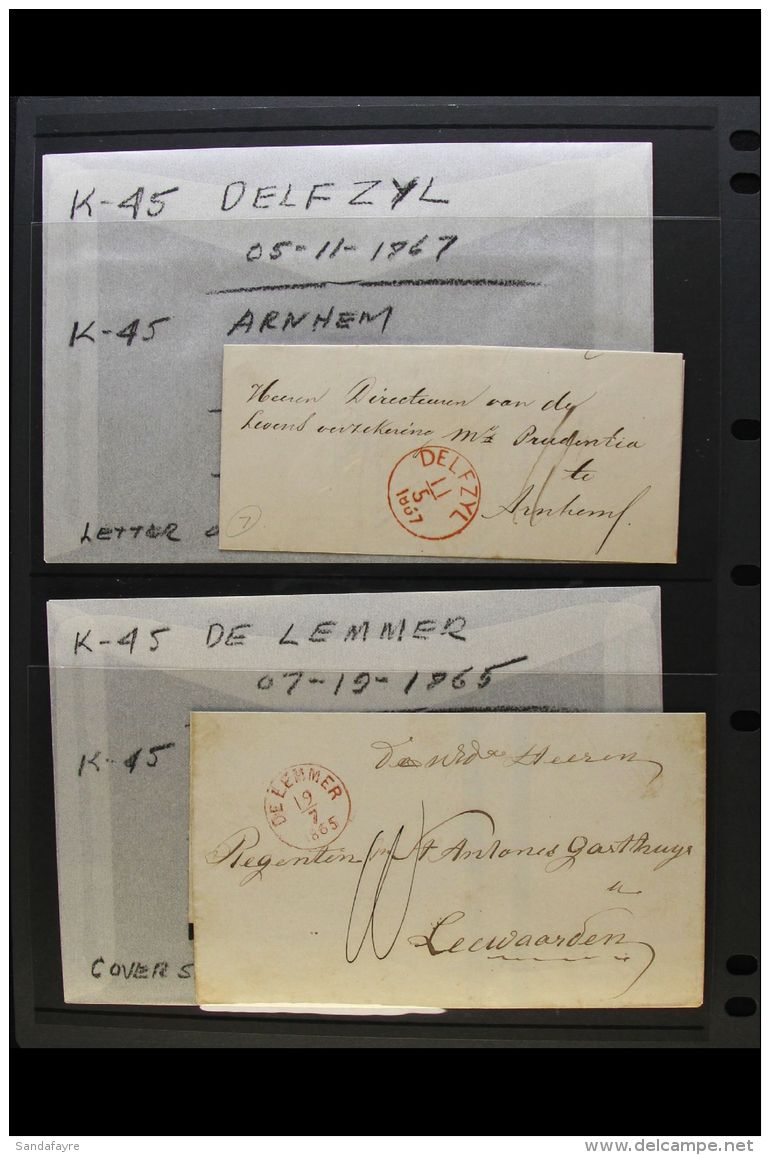 K-45 DELFZYL
05-11-1867
K-45 ARNHEM
Heeren Directeuren van de
Levens verzekering Mij Prudentia
te
Arnhem
DELFZYL
11
5
1867
7
LETTER
K-45 DE LEMMER
07-19-1865
K-45
Heeren
DE LEMMER
19
7
1865
Regenten St Antonie Gasthuys
Leeuwaarden
COVER S
Sandafayre
delcampe.net